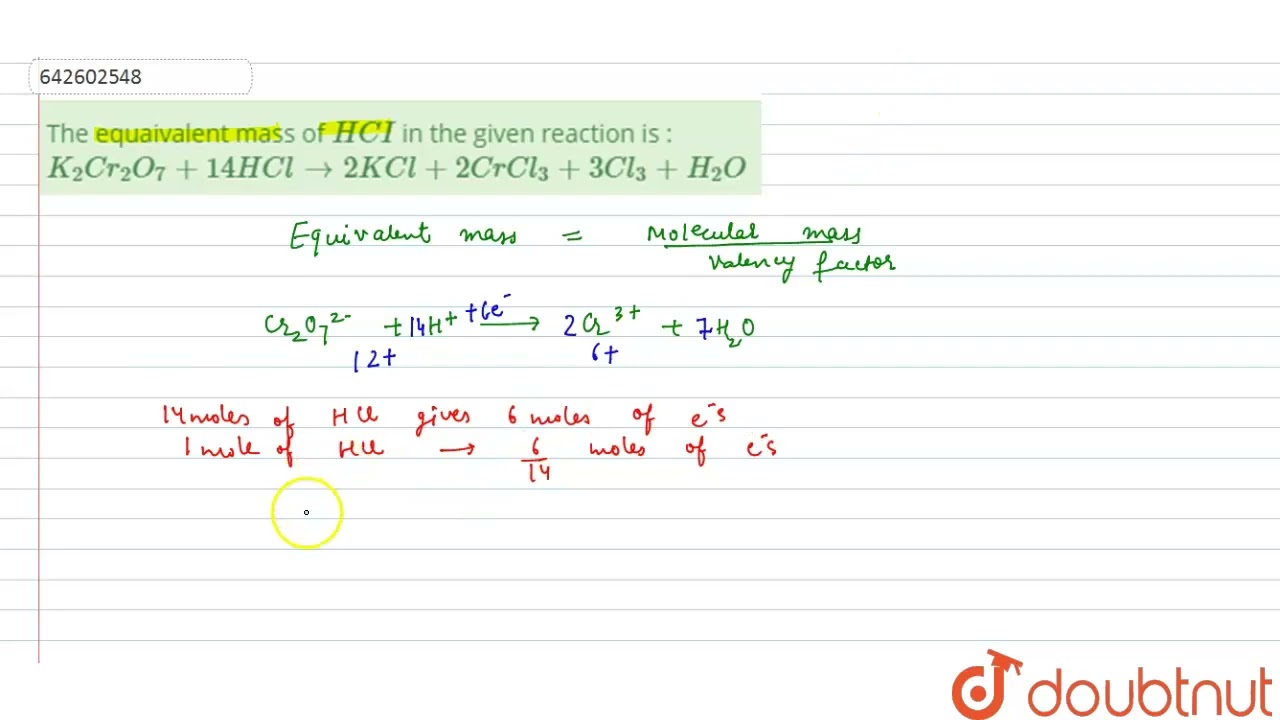 642602548
The equaivalent mass of HCI in the given reaction is :
K₂Cr₂O₇ + 14HCl → 2KCl + 2CrCl₃ + 3Cl₃ + H₂O
Equivalent mass = Molecular mass
Valency factor
Cr₂O₇²⁻ + 14H⁺ +6e⁻ → 2Cr³⁺ + 7H₂O
12+ 6+
14 moles of HCl gives 6 moles of e⁻s
1 mole of HCl → 6/14 moles of e⁻s
doubtnut